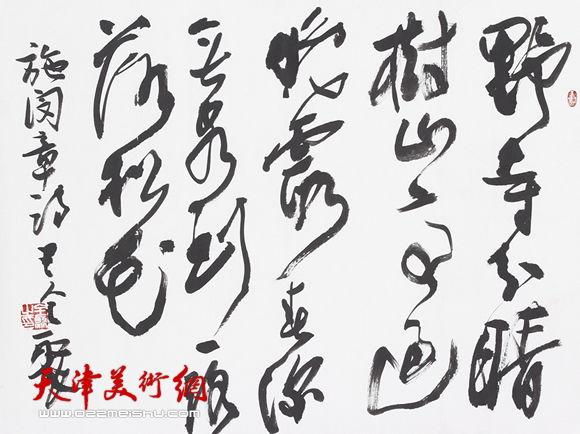 野寺分晴
樹山亭過
晚霞春深
無客到一路
落松花
施閏章詩
天津美術網
www.022meishu.com